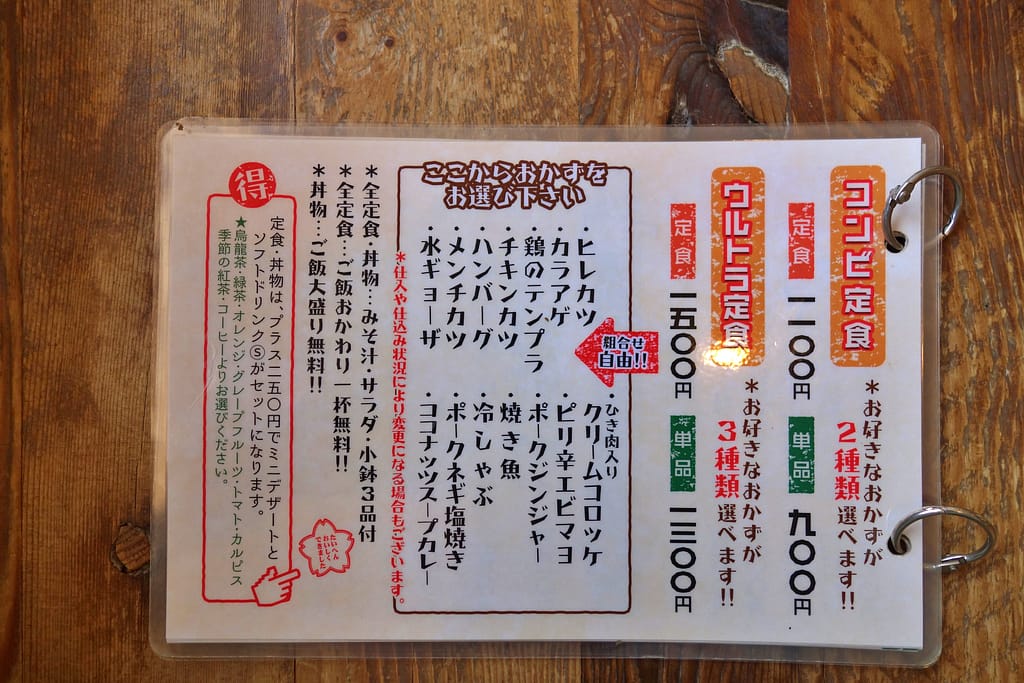 コンビ定食
＊お好きなおかずが
２種類選べます!!
定食 一一〇〇円 単品 九〇〇円
ウルトラ定食
＊お好きなおかずが
３種類選べます!!
定食 一五〇〇円 単品 一三〇〇円
ここからおかずを
お選び下さい
組合せ
自由!!
・ヒレカツ
・カラアゲ
・鶏のテンプラ
・チキンカツ
・ハンバーグ
・メンチカツ
・水ギョーザ
・ひき肉入り
クリームコロッケ
・ピリ辛エビマヨ
・ポークジンジャー
・焼き魚
・冷しゃぶ
・ポークネギ塩焼き
・ココナッツスープカレー
＊仕入や仕込み状況により変更になる場合もございます。
＊全定食・丼物…みそ汁・サラダ・小鉢３品付
＊全定食…ご飯おかわり一杯無料!!
＊丼物…ご飯大盛り無料!!
たいへん
おいしく
できました
得
定食・丼物は、プラス二五〇円でミニデザートと
ソフトドリンクⓈがセットになります。
★烏龍茶・緑茶・オレンジ・グレープフルーツ・トマト・カルピス
季節の紅茶・コーヒーよりお選びください。